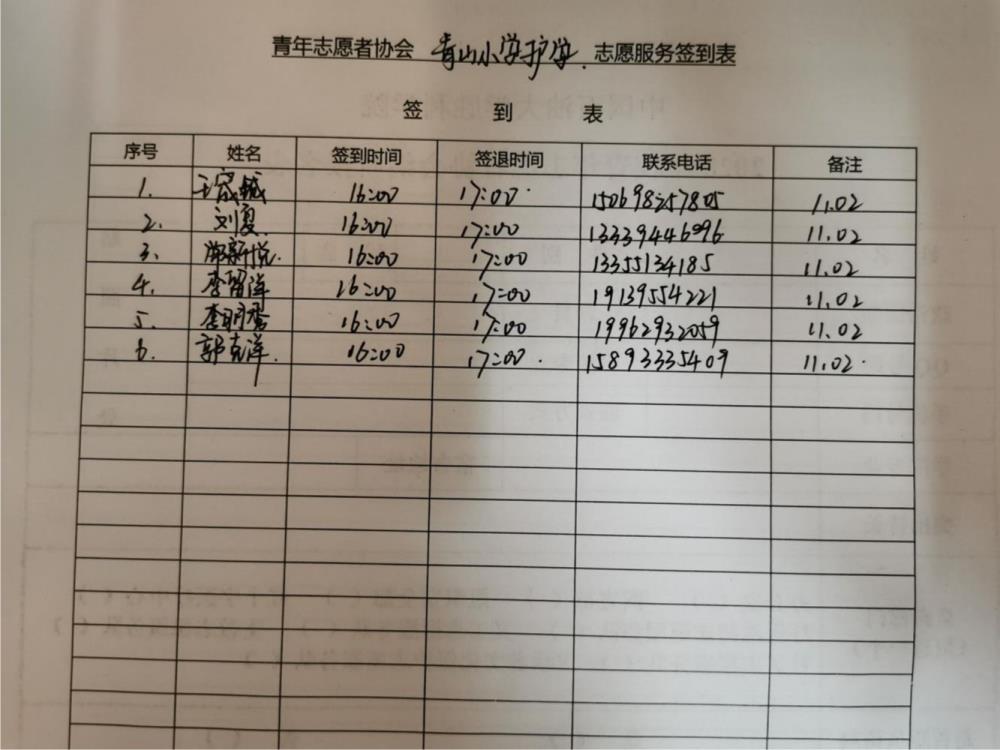 青年志愿者协会 青山小学护学 志愿服务签到表
签 到 表
序号 姓名 签到时间 签退时间 联系电话 备注
1. 王宬城 16:00 17:00 150698257805 11.02
2. 刘夏 16:00 17:00 13339446096 11.02
3. 邢新悦 16:00 17:00 13355134185 11.02
4. 李留洋 16:00 17:00 19139554221 11.02
5. 李明雪 16:00 17:00 19962932059 11.02
6. 郭克洋 16:00 17:00 15893335409 11.02